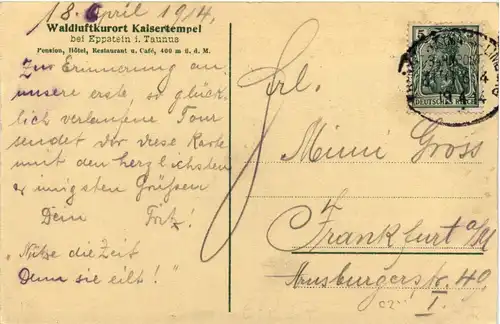 18. April 1914.
Waldluftkurort Kaisertempel
bei Eppstein i. Taunus
Pension, Hôtel, Restaurant u. Café, 400 m ü. d. M.
Zur Erinnerung an
unsere erste so glück-
lich verlaufene Tour
sendet dir diese Karte
mit den herzlichsten
& innigsten Grüßen
Dein Fritz!
"Nütze die Zeit
Denn sie eilt!"
5
DEUTSCHES REICH
Frl.
Mimi Gross
Frankfurt a/M
Arnsburgerstr. 49
I.